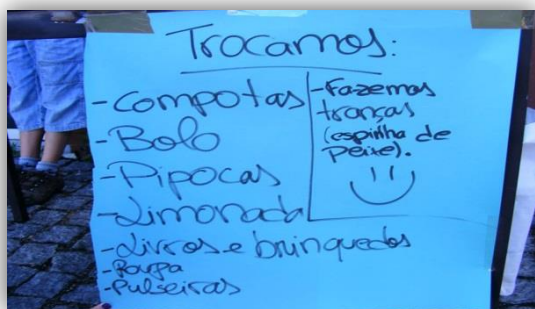 Trocamos:
-Compotas
-Bolo
-Pipocas
-Limonada
-Livros e brinquedos
-Roupa
-Pulseiras
-Fazemos
tranças
(espinha de
peixe).